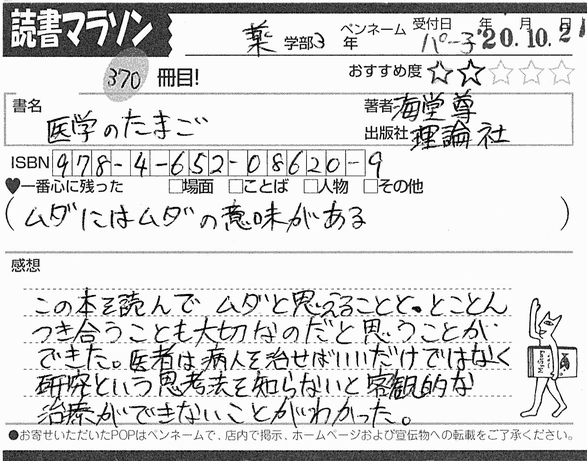 読書マラソン
薬 学部 3 年 ペンネーム パー子 受付日 '20年.10月.21日
370 冊目! おすすめ度 ☆☆☆☆☆
書名 医学のたまご
著者 海堂尊
出版社 理論社
ISBN 978-4-652-08620-9
♥一番心に残った □場面 □ことば □人物 □その他
(ムダにはムダの意味がある)
感想
この本を読んで ムダと思えることと、とことん
つき合うことも大切なのだと思うことが
できた。医者は病人を治せばいいだけではなく
研究という思考法を知らないと客観的な
治療ができないことがわかった。
●お寄せいただいたPOPはペンネームで、店内で掲示、ホームページおよび宣伝物への転載をご了承ください。